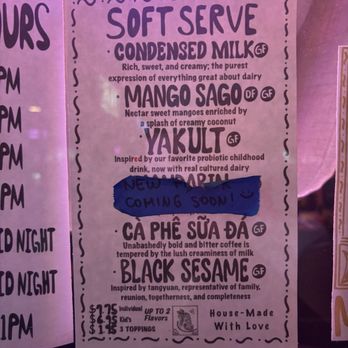 OURS
PM
PM
PM
PM
IDNIGHT
IDNIGHT
1PM
SOFT SERVE
· CONDENSED MILK GF
Rich, sweet, and creamy; the purest
expression of everything great about dairy
· MANGO SAGO DF GF
Nectar sweet mangoes enriched by
a splash of creamy coconut
YAKULT GF
Inspired by our favorite probiotic childhood
drink, now with real cultured dairy
NEW
COMING SOON!
· CÀ PHÊ SỮA ĐÁ GF
Unabashedly bold and bitter coffee is
tempered by the lush creaminess of milk
BLACK SESAME GF
Inspired by tangyuan, representative of family,
reunion, togetherness, and completeness
Individual
Kid's
3 TOPPINGS
UP TO 2
Flavors
House-Made
With Love